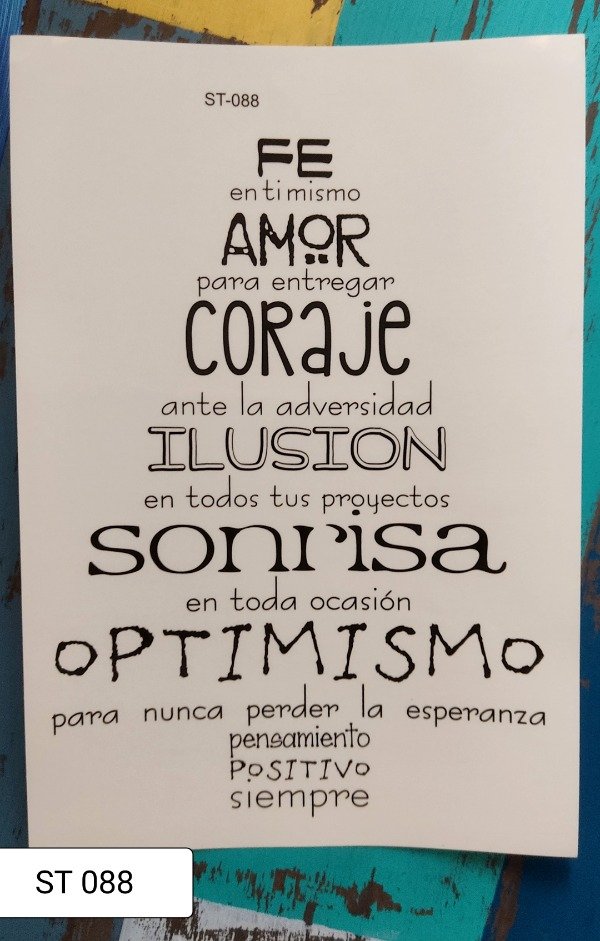 ST-088
FE
en ti mismo
AMOR
para entregar
CORAJE
ante la adversidad
ILUSION
en todos tus proyectos
sonrisa
en toda ocasión
OPTIMISMO
para nunca perder la esperanza
pensamiento
POSITIVO
siempre
ST 088